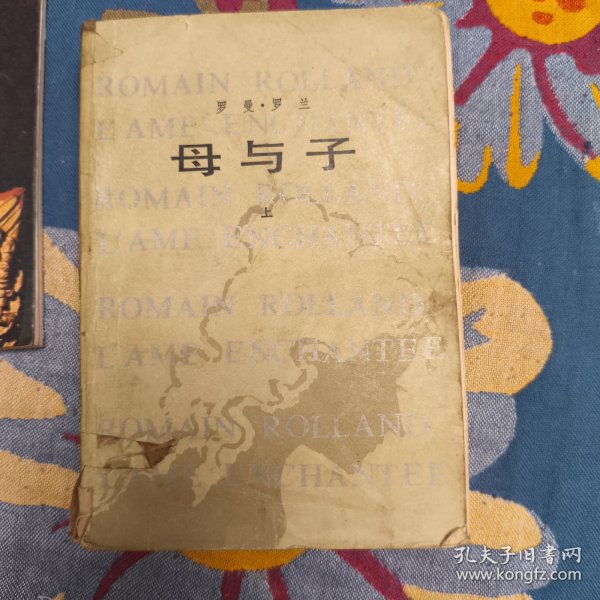 ROMAIN ROLLAND
罗曼·罗兰
L'AME ENCHANTEE
母与子
ROMAIN ROLLAND
上
L'AME ENCHANTEE
ROMAIN ROLLAND
L'AME ENCHANTEE
ROMAIN ROLLAND
L'AME ENCHANTEE
孔夫子旧书网
www.kongfz.com